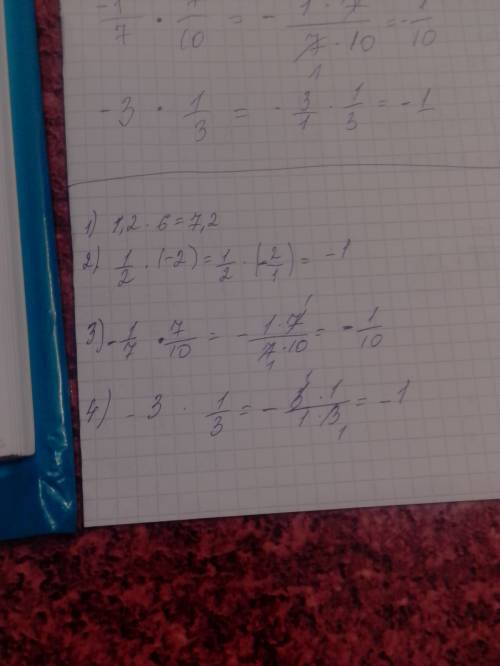 -1/7 · 7/10 = - 1·7/7·10 = -1/10
-3 · 1/3 = - 3/1 · 1/3 = -1
1) 1,2 · 6 = 7,2
2) 1/2 · (-2) = 1/2 · (-2/1) = -1
3) -1/7 · 7/10 = - 1·7/7·10 = - 1/10
4) - 3 · 1/3 = - 3·1/1·3 = -1